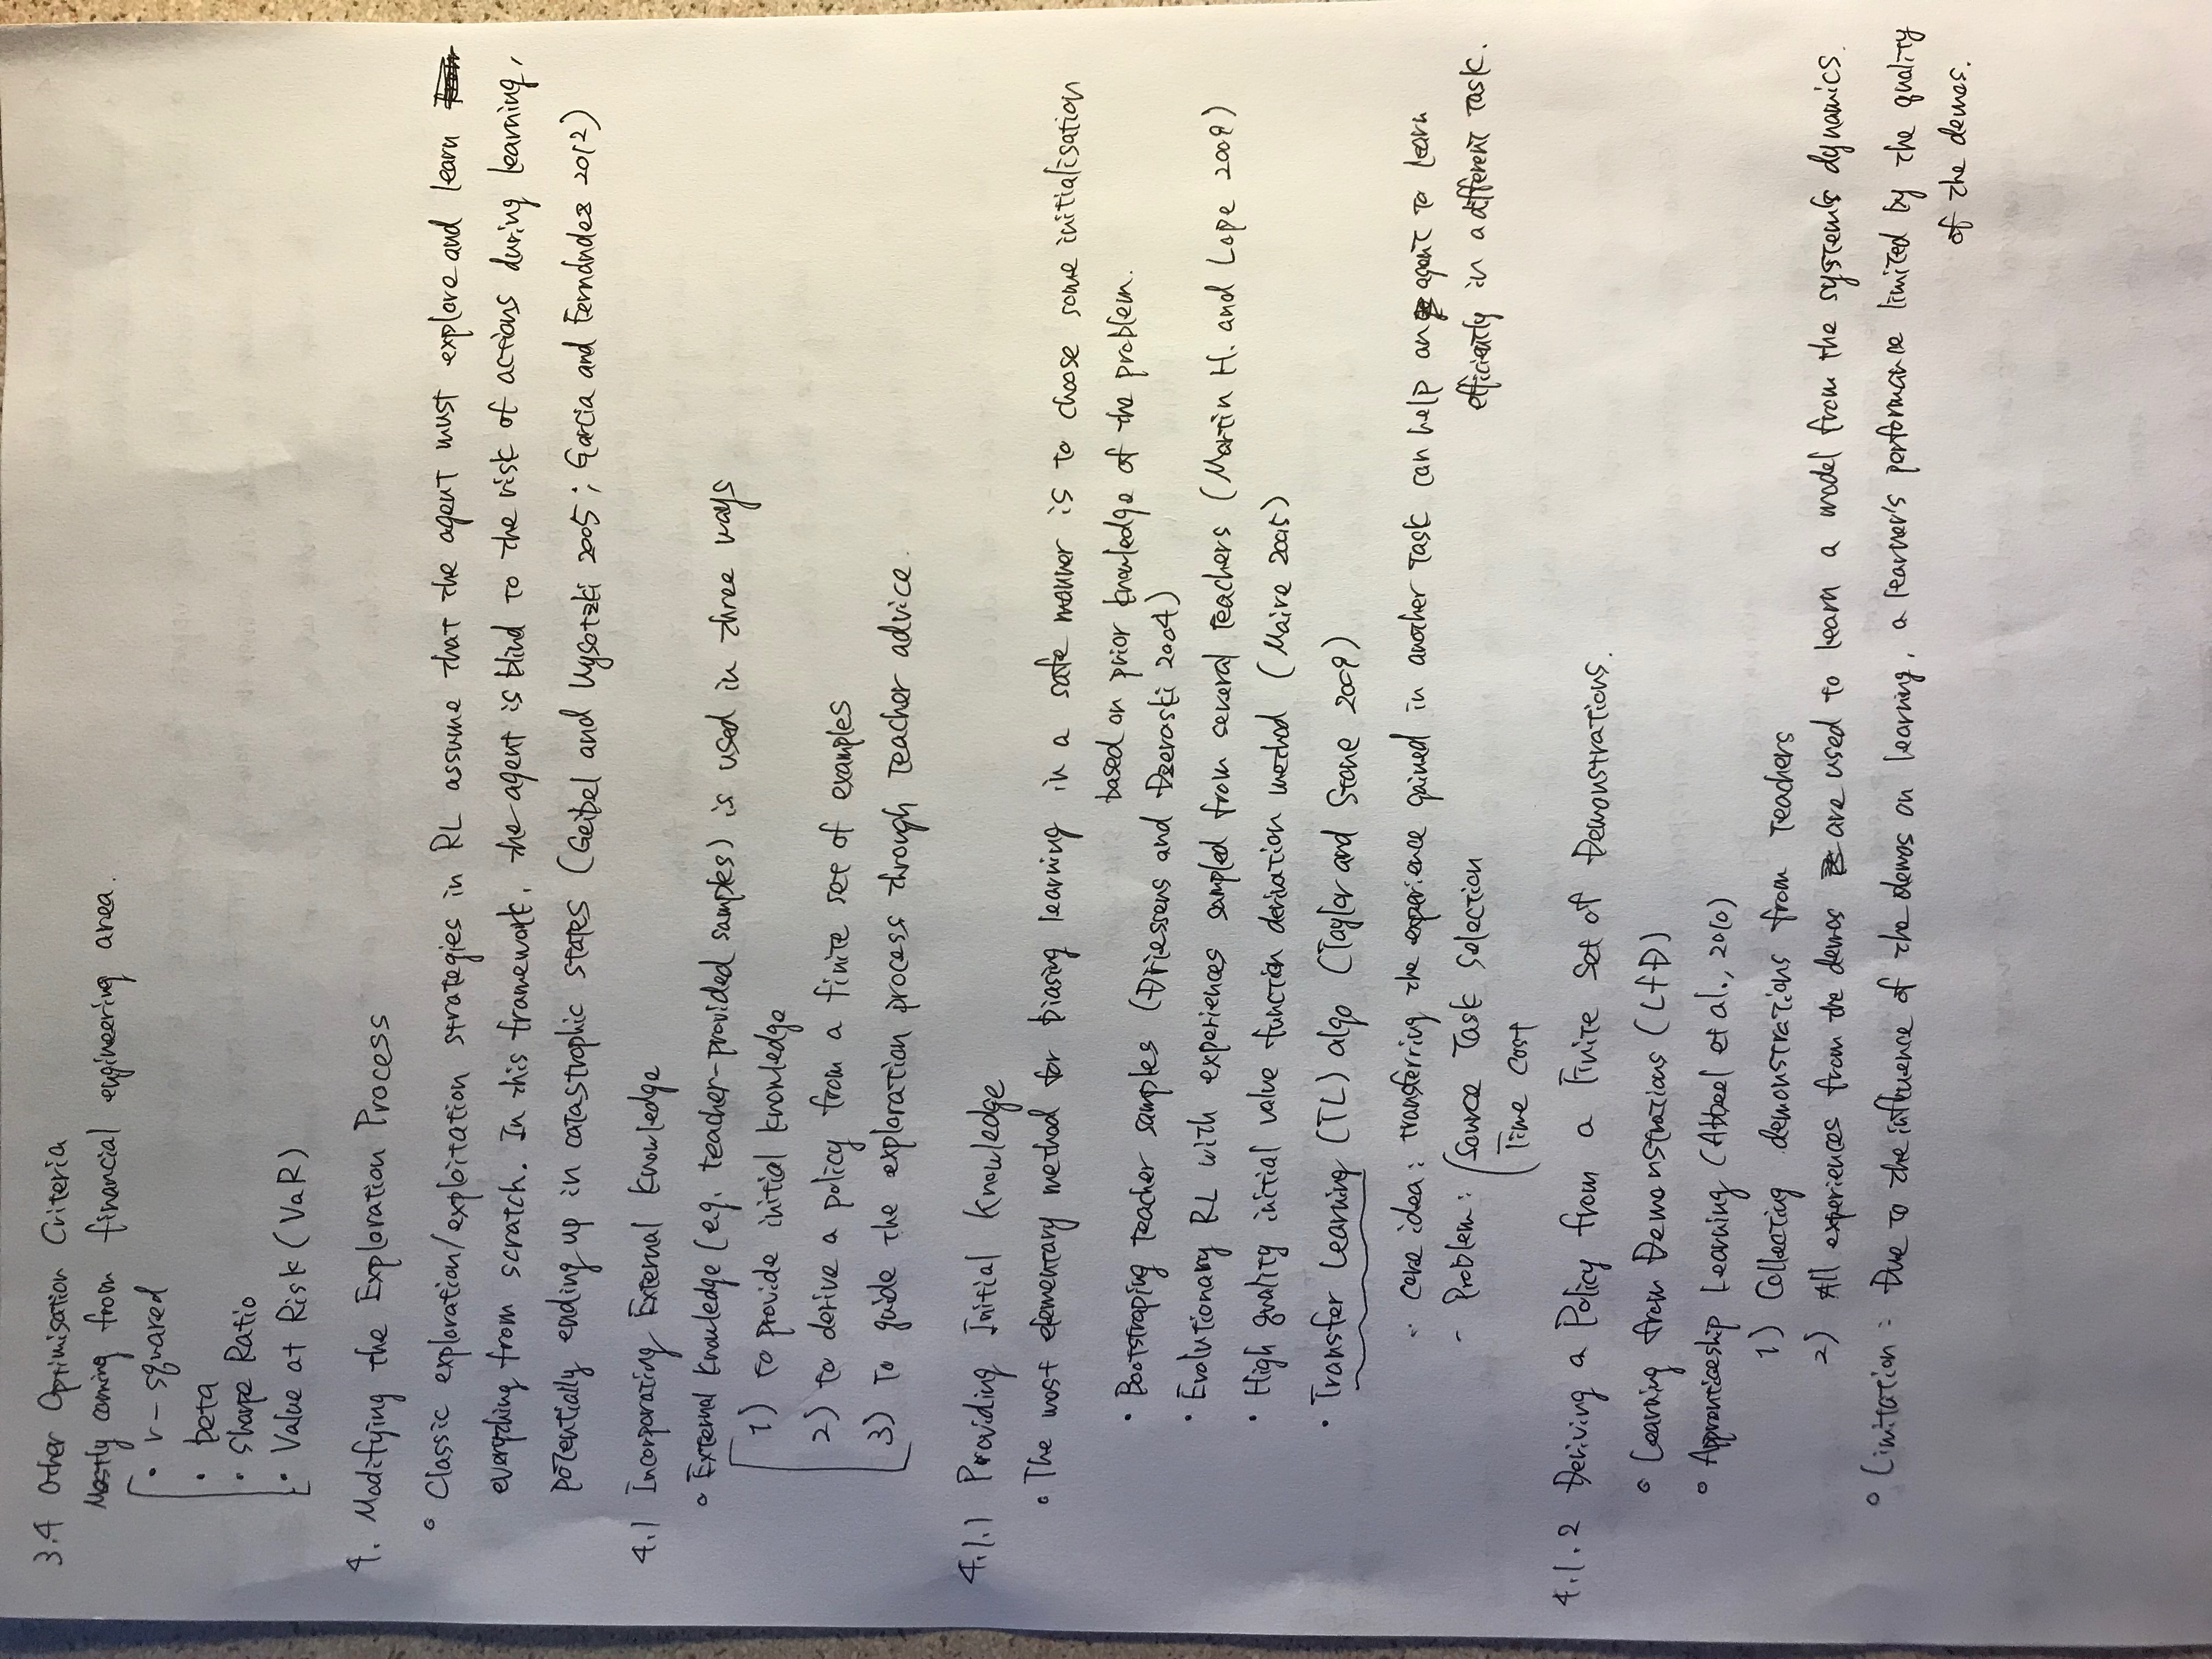 3.4 Other Optimisation Criteria
Mostly coming from financial engineering area.
• r-squared
• beta
• Sharpe Ratio
• Value at Risk (VaR)
4. Modifying the Exploration Process
◦ Classic exploration/exploitation strategies in RL assume that the agent must explore and learn
everything from scratch. In this framework, the agent is blind to the risk of actions during learning,
potentially ending up in catastrophic states (Geibel and Wysotzki 2005; Garcia and Fernández 2012)
4.1 Incorporating External Knowledge
◦ External knowledge (e.g. teacher-provided samples) is used in three ways
1) to provide initial knowledge
2) to derive a policy from a finite set of examples
3) To guide the exploration process through teacher advice.
4.1.1 Providing Initial Knowledge
◦ The most elementary method for biasing learning in a safe manner is to choose some initialisation
based on prior knowledge of the problem.
• Bootstraping teacher samples (Driessens and Dzeroski 2004)
• Evolutionary RL with experiences sampled from several teachers (Martin H. and Lope 2009)
• High quality initial value function derivation method (Maire 2005)
• Transfer Learning (TL) algo (Taylor and Stone 2009)
- core idea: transferring the experience gained in another task can help an agent to learn
efficiently in a different task.
- Problem: Source Task Selection
Time Cost
4.1.2 Deriving a Policy from a Finite Set of Demonstrations.
◦ Learning from Demonstrations (LfD)
◦ Apprenticeship Learning (Abbeel et al., 2010)
1) Collecting demonstrations from teachers
2) All experiences from the demos are used to learn a model from the system's dynamics.
◦ Limitation: Due to the influence of the demos on learning, a learner's performance limited by the quality
of the demos.